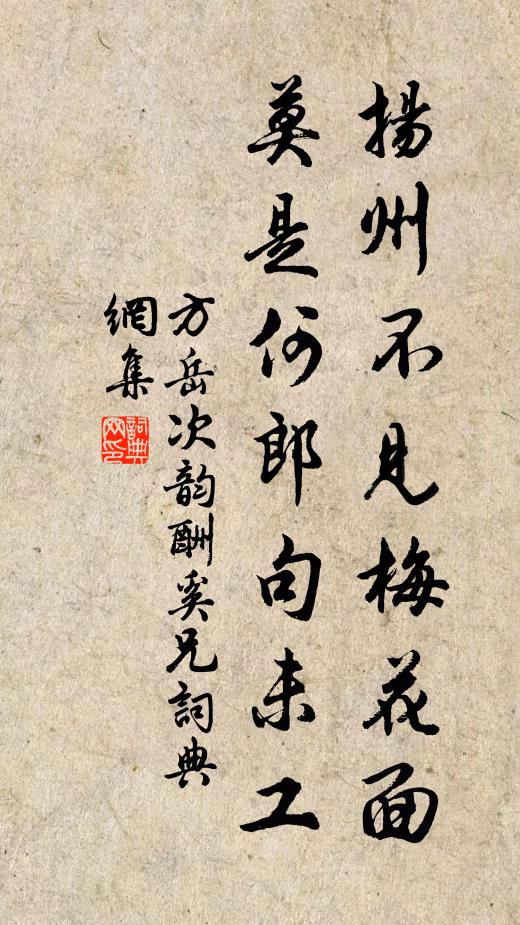 揚州不見梅花面
莫是何郎句未工
方岳次韵酬奚兄詞典
網集
詞典網印